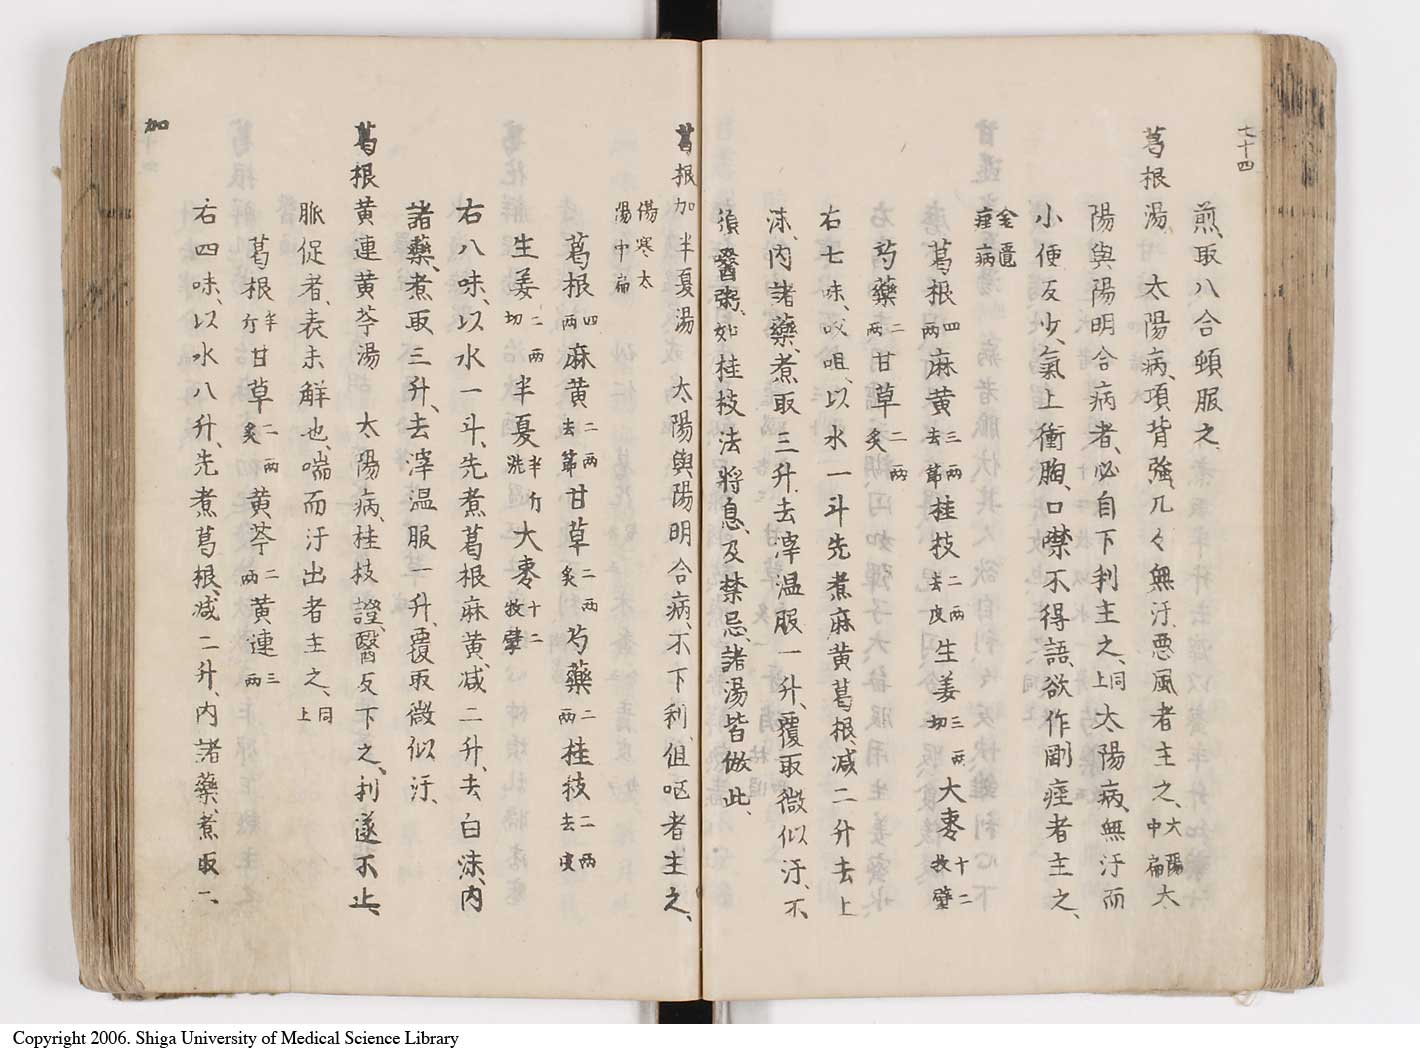 七十四
煎、取八合頓服之、
葛根湯、太陽病、項背強几々無汗惡風者主之、太陽中扁太
陽與陽明合病者、必自下利主之、同上太陽病、無汗而
小便反少、氣上衝胸、口噤不得語、欲作剛痙者主之、
金匱痙病
葛根四兩麻黄三兩去節桂枝二兩去皮生姜三兩切大棗十二枚擘
芍藥二兩甘草二兩炙
右七味、㕮咀、以水一斗先煮麻黄葛根、减二升去上
沫、内諸藥、煮取三升、去滓温服一升、覆取微似汗、不
須啜粥、如桂枝法將息、及禁忌、諸湯皆倣此、
葛根加半夏湯 太陽與陽明合病、不下利、但呕者主之、
傷寒太陽中扁
葛根四兩麻黄二兩去節甘草二兩炙芍藥二兩桂枝二兩去皮
生姜二兩切半夏半斤洗大棗十二枚擘
右八味、以水一斗、先煮葛根麻黄、减二升、去白沫、内
諸藥、煮取三升、去滓温服一升、覆取微似汗、
葛根黄連黄芩湯 太陽病、桂枝證、醫反下之、利遂不止、
脈促者、表未解也、喘而汗出者主之、同上
葛根半斤甘草二兩炙黄芩二兩黄連三兩
右四味、以水八升、先煮葛根、减二升、内諸藥、煮取二、
加
Copyright 2006. Shiga University of Medical Science Library